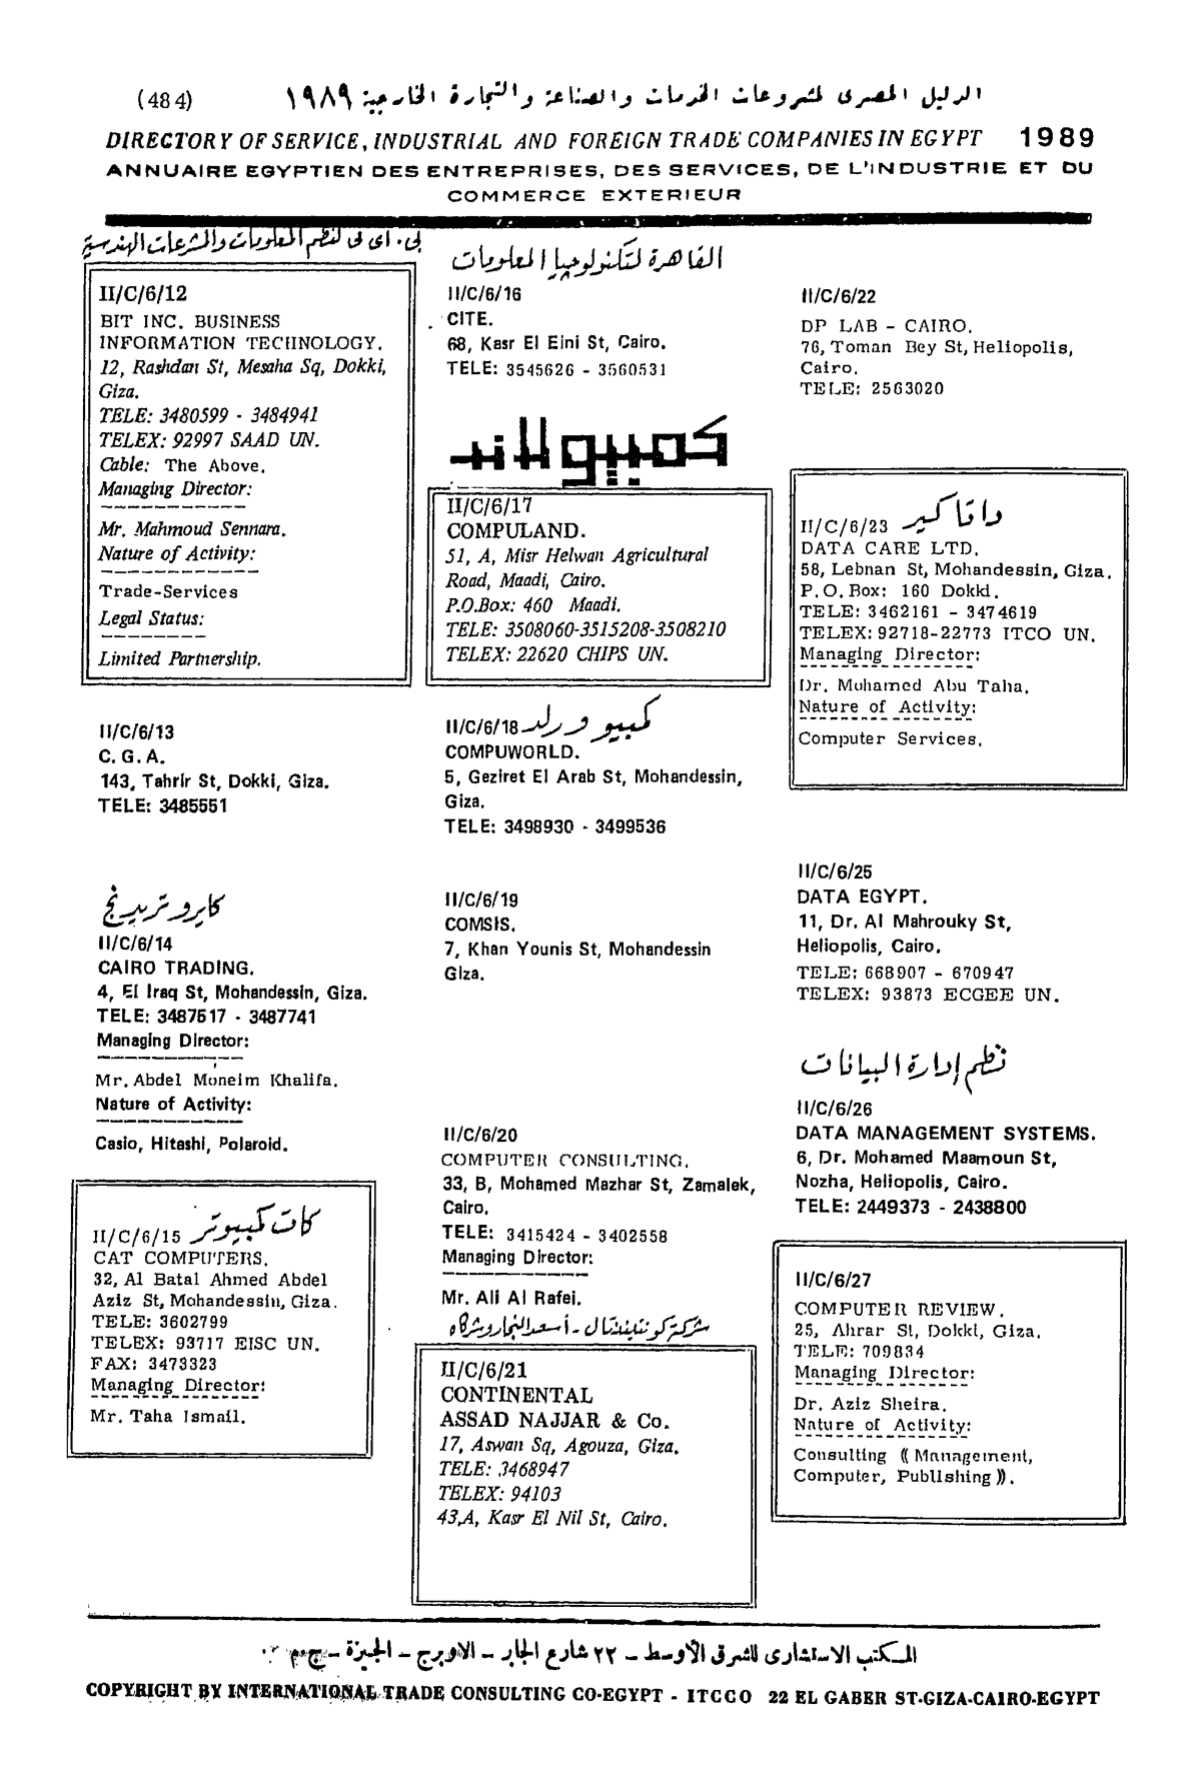 (484)
الدليل المصرى لمشروعات الخدمات والصناعة والتجارة الخارجية ١٩٨٩
DIRECTORY OF SERVICE, INDUSTRIAL AND FOREIGN TRADE COMPANIES IN EGYPT 1989
ANNUAIRE EGYPTIEN DES ENTREPRISES, DES SERVICES, DE L'INDUSTRIE ET DU
COMMERCE EXTERIEUR
بى ٠ اى تى لنظم المعلومات والمشرعات الهندسية
II/C/6/12
BIT INC. BUSINESS
INFORMATION TECHNOLOGY.
12, Rashdan St, Mesaha Sq, Dokki,
Giza.
TELE: 3480599 - 3484941
TELEX: 92997 SAAD UN.
Cable: The Above.
Managing Director:
Mr. Mahmoud Sennara.
Nature of Activity:
Trade-Services
Legal Status:
Limited Partnership.
II/C/6/13
C.G.A.
143, Tahrir St, Dokki, Giza.
TELE: 3485551
كايرو تريدينج
II/C/6/14
CAIRO TRADING.
4, El Iraq St, Mohandessin, Giza.
TELE: 3487517 - 3487741
Managing Director:
Mr. Abdel Moneim Khalifa.
Nature of Activity:
Casio, Hitashi, Polaroid.
II/C/6/15 كات كمبيوتر
CAT COMPUTERS.
32, Al Batal Ahmed Abdel
Aziz St, Mohandessin, Giza.
TELE: 3602799
TELEX: 93717 EISC UN.
FAX: 3473323
Managing Director:
Mr. Taha Ismail.
القاهرة لتكنولوجيا المعلومات
II/C/6/16
CITE.
68, Kasr El Eini St, Cairo.
TELE: 3545626 - 3560531
كمبيولاند
II/C/6/17
COMPULAND.
51, A, Misr Helwan Agricultural
Road, Maadi, Cairo.
P.O.Box: 460 Maadi.
TELE: 3508060-3515208-3508210
TELEX: 22620 CHIPS UN.
II/C/6/18 كمبيو ورلد
COMPUWORLD.
5, Geziret El Arab St, Mohandessin,
Giza.
TELE: 3498930 - 3499536
II/C/6/19
COMSIS.
7, Khan Younis St, Mohandessin
Giza.
II/C/6/20
COMPUTER CONSULTING.
33, B, Mohamed Mazhar St, Zamalek,
Cairo.
TELE: 3415424 - 3402558
Managing Director:
Mr. Ali Al Rafei.
شركة كونتيننتال - أسعد النجار وشركاه
II/C/6/21
CONTINENTAL
ASSAD NAJJAR & Co.
17, Aswan Sq, Agouza, Giza.
TELE: 3468947
TELEX: 94103
43,A, Kasr El Nil St, Cairo.
II/C/6/22
DP LAB - CAIRO.
76, Toman Bey St, Heliopolis,
Cairo.
TELE: 2563020
II/C/6/23 داتا كير
DATA CARE LTD.
58, Lebnan St, Mohandessin, Giza.
P.O.Box: 160 Dokki.
TELE: 3462161 - 3474619
TELEX: 92718-22773 ITCO UN.
Managing Director:
Dr. Mohamed Abu Taha.
Nature of Activity:
Computer Services.
II/C/6/25
DATA EGYPT.
11, Dr. Al Mahrouky St,
Heliopolis, Cairo.
TELE: 668907 - 670947
TELEX: 93873 ECGEE UN.
نظم إدارة البيانات
II/C/6/26
DATA MANAGEMENT SYSTEMS.
6, Dr. Mohamed Maamoun St,
Nozha, Heliopolis, Cairo.
TELE: 2449373 - 2438800
II/C/6/27
COMPUTER REVIEW.
25, Ahrar St, Dokki, Giza.
TELE: 709834
Managing Director:
Dr. Aziz Sheira.
Nature of Activity:
Consulting (( Management,
Computer, Publishing )).
المكتب الاستشارى للشرق الأوسط - ٢٢ شارع الجابر - الاوبرج - الجيزة - ج.م.ع
COPYRIGHT BY INTERNATIONAL TRADE CONSULTING CO-EGYPT - ITCCO 22 EL GABER ST-GIZA-CAIRO-EGYPT